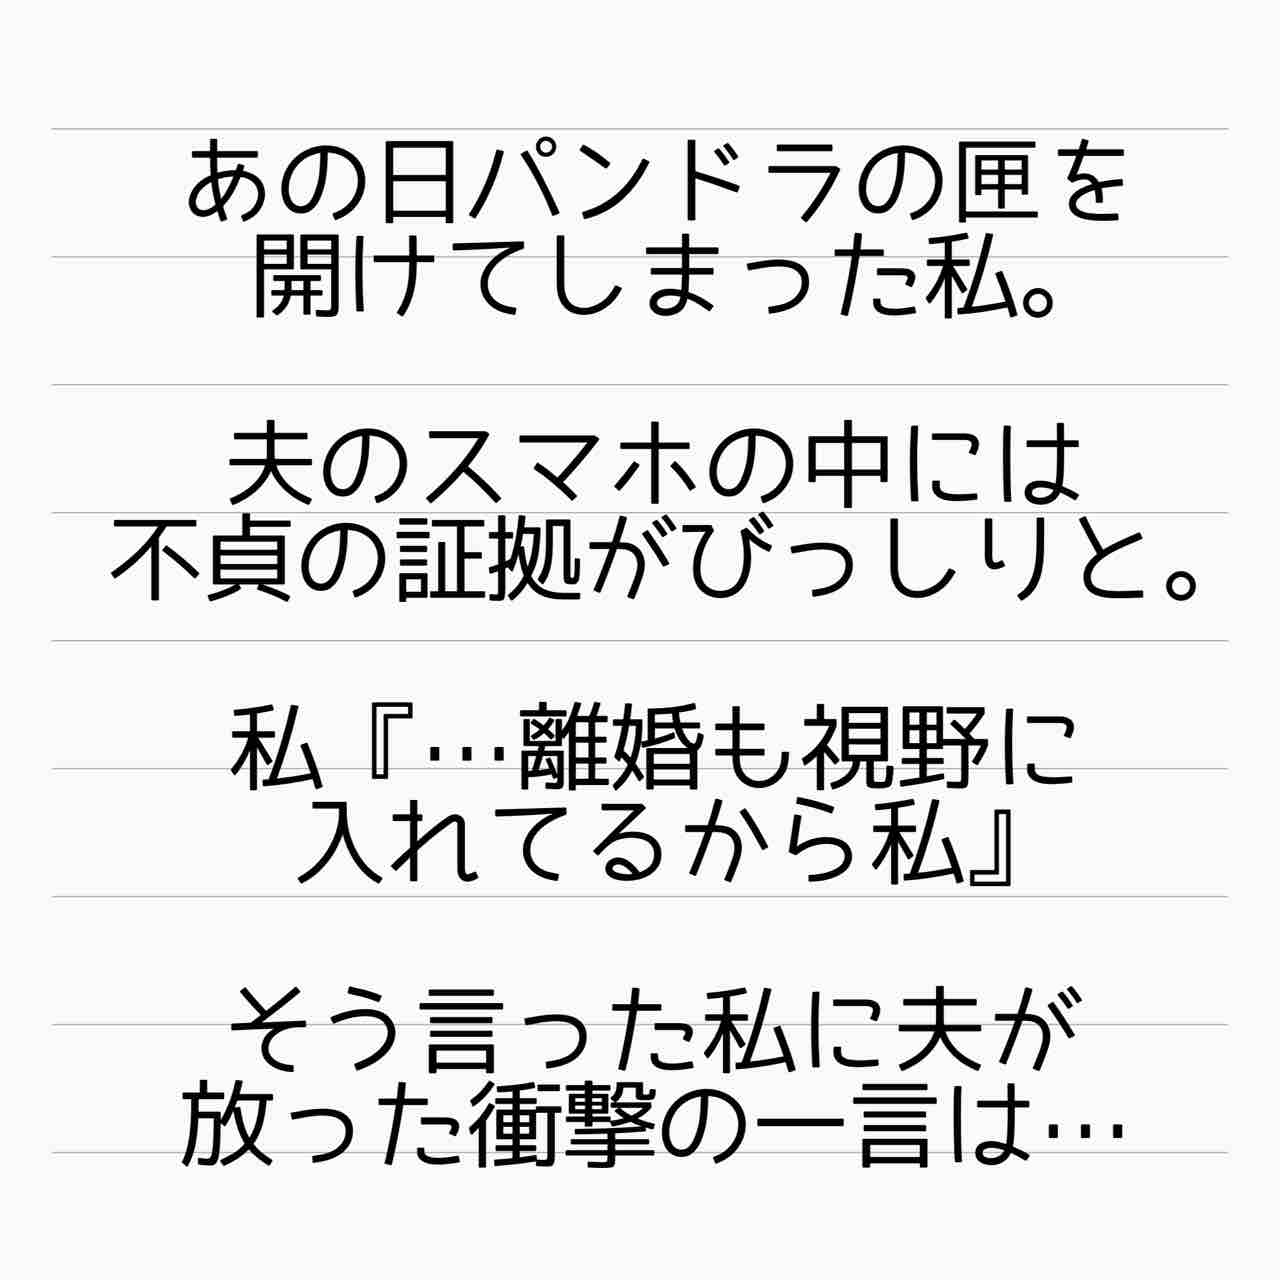 あの日パンドラの匣を
開けてしまった私。
夫のスマホの中には
不貞の証拠がびっしりと。
私『…離婚も視野に
入れてるから私』
そう言った私に夫が
放った衝撃の一言は…